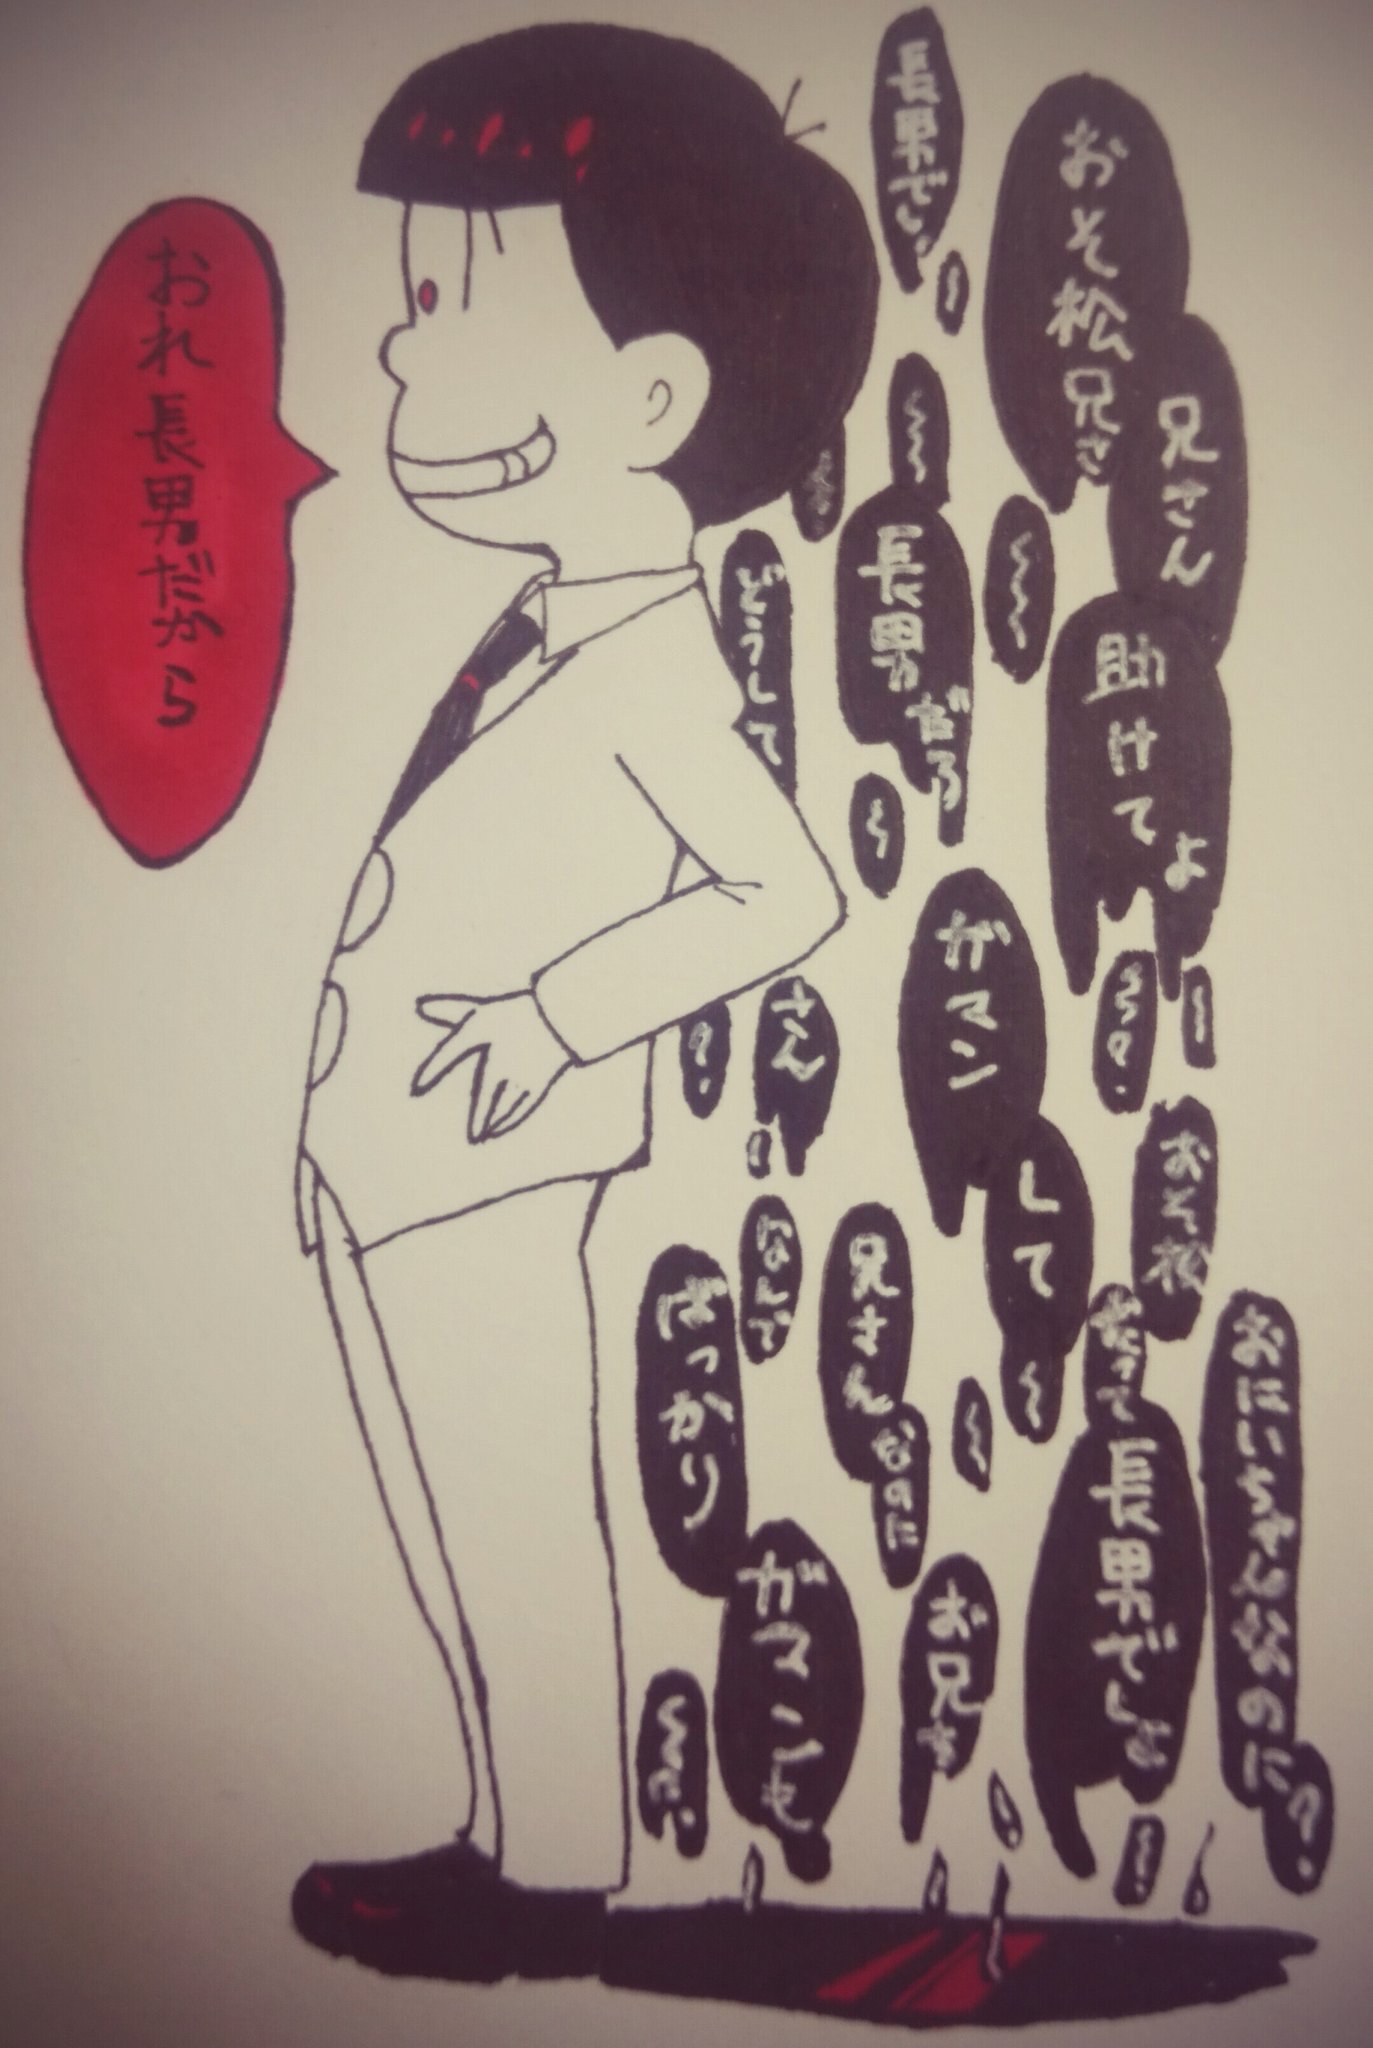 おそ松兄さ
兄さん
助けてよ
長男でし
長男だろ
どうして
ガマン
して
さん
なんで
兄さん
なのに
ばっかり
ガマンも
お兄ち
おそ松
だって
長男でしょ
おにいちゃんなのに?
おれ長男だから